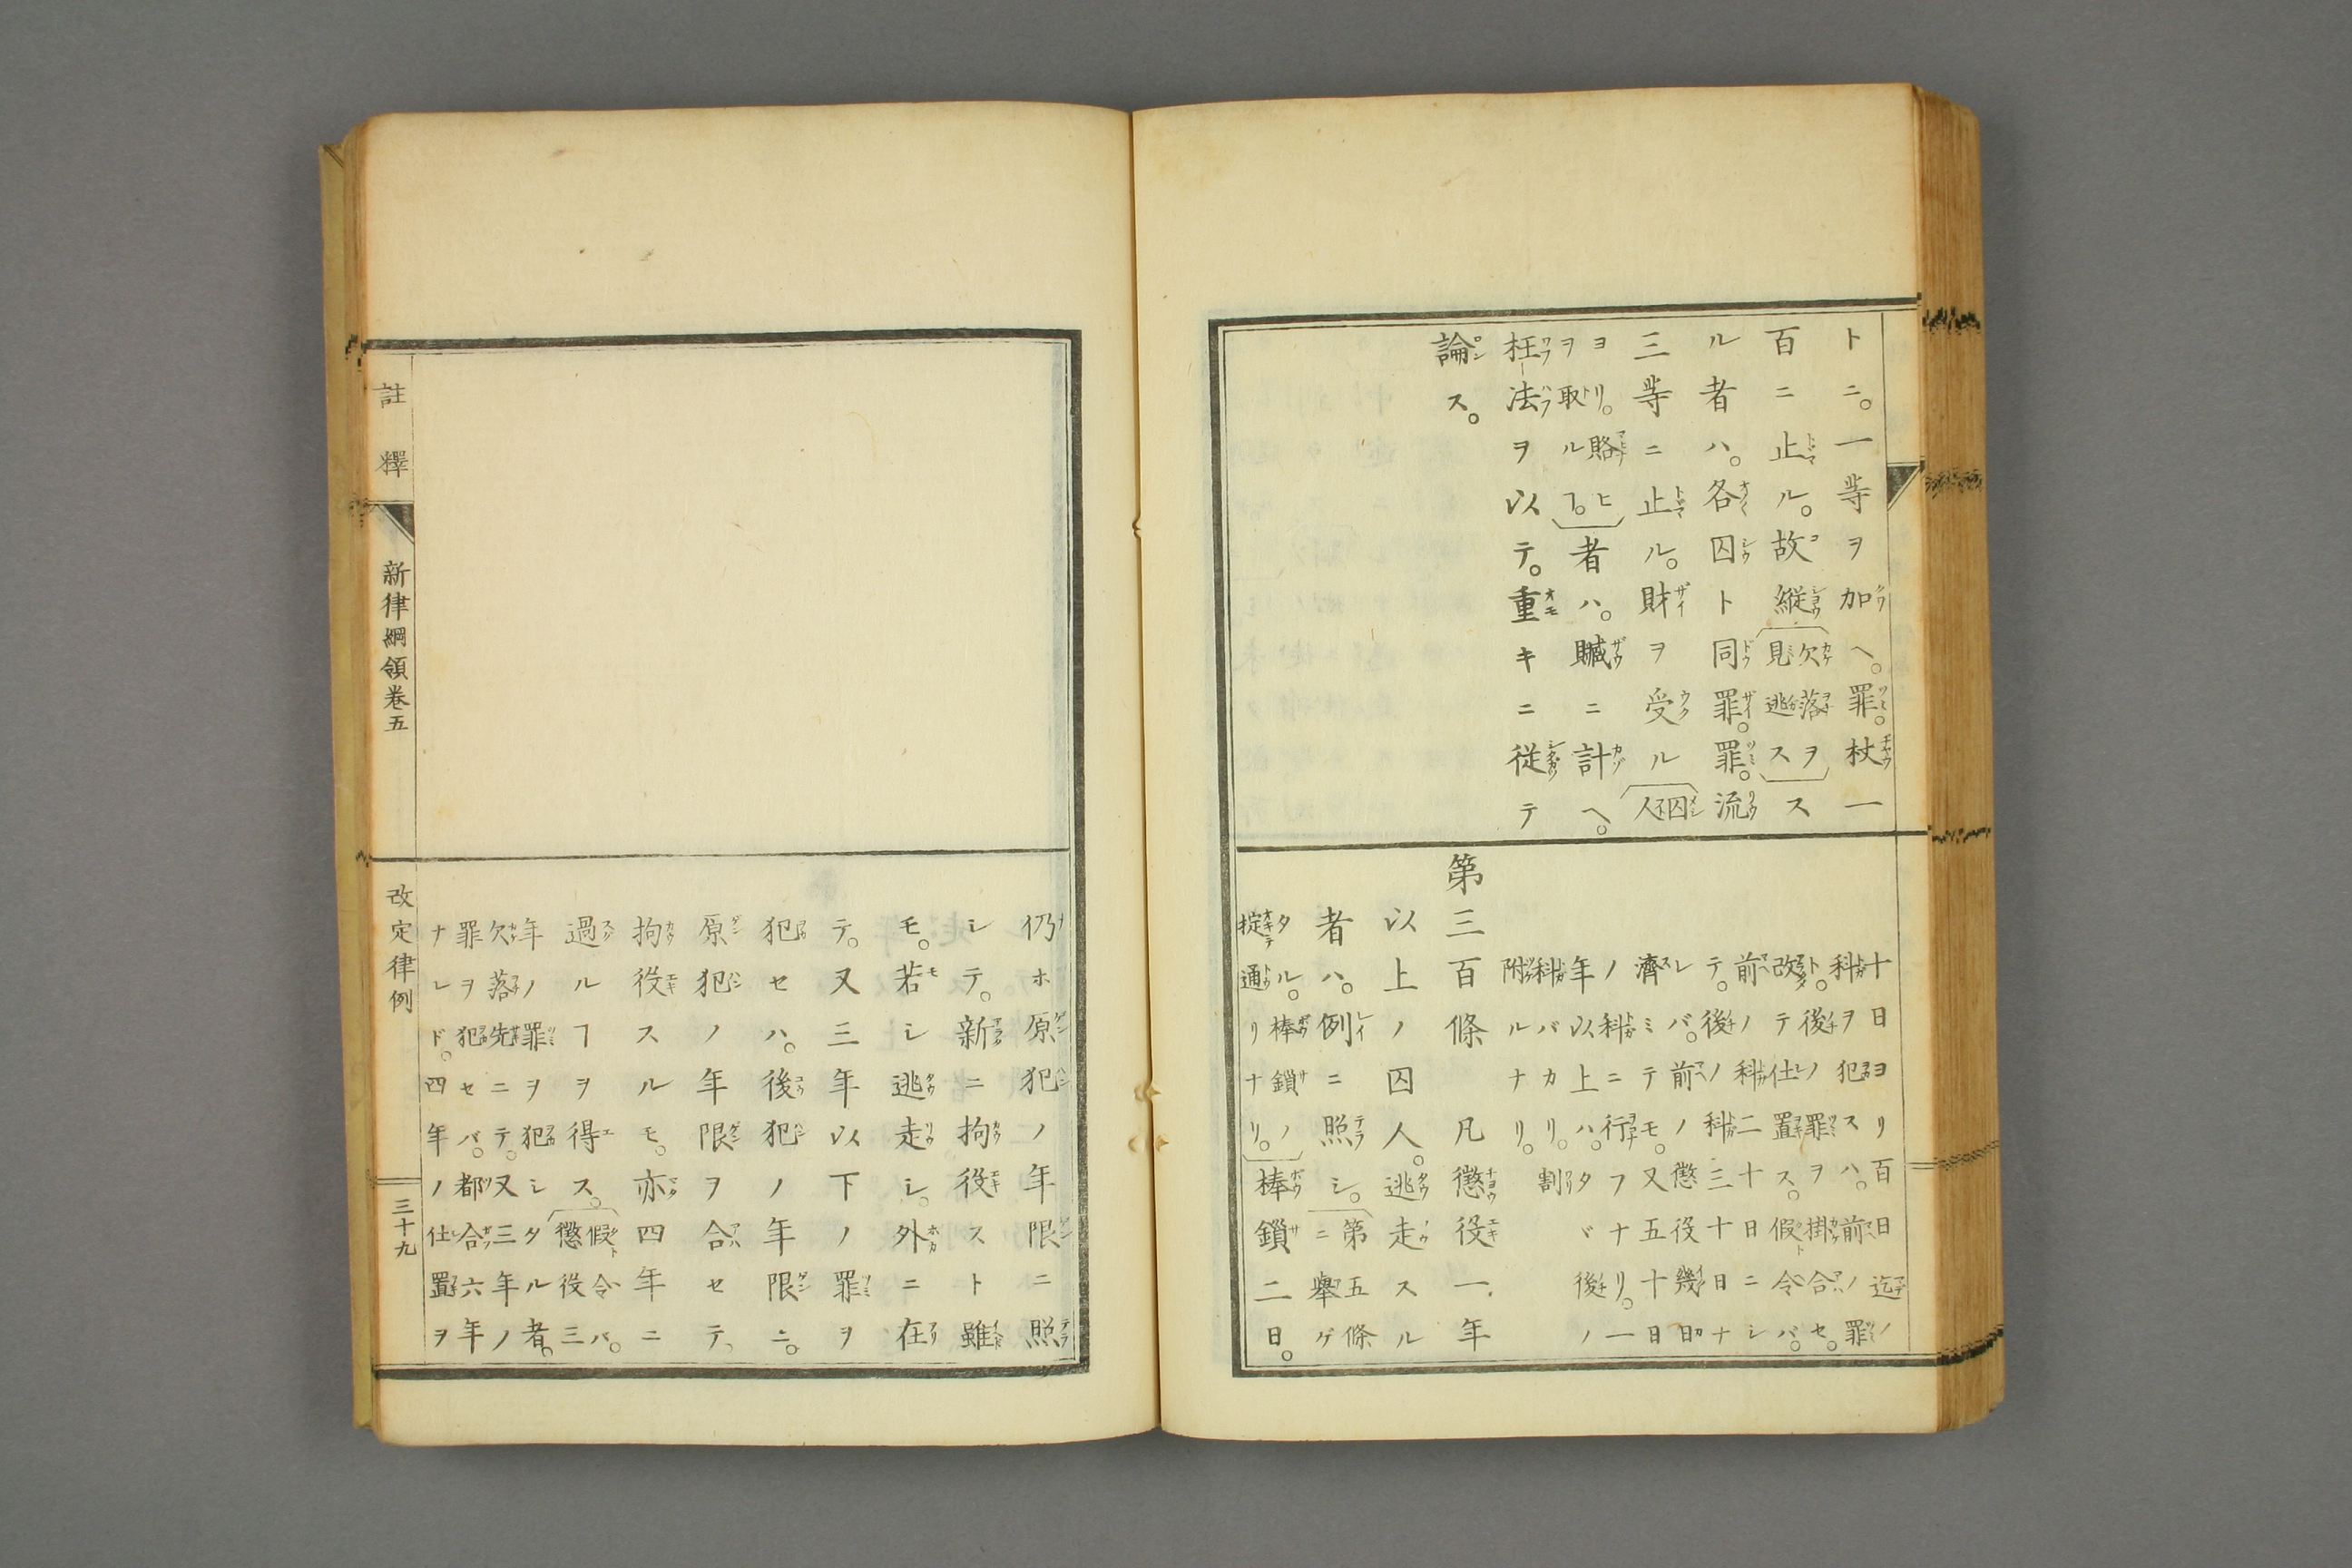 トニ。一等ヲ加ヘ。罪。杖一
百ニ止ル。故縦欠落ヲ見逃スス
ル者ハ。各囚ト同罪。罪。流
三等ニ止ル。財ヲ受ル囚人
ヨリ。賂ヒヲ取ルヿ。者ハ。贓ニ計ヘ。
枉法ヲ以テ。重キニ従テ
論ス。
十日ヨリ百日迄ノ
科ヲ犯スハ。前ノ罪
ト。後ノ罪ヲ掛合セ。
改テ仕置ス。假令バ。
前ノ科二十日ニシ
テ。後ノ科三十日ナ
レバ。前ノ懲役幾日
濟ミテモ。又五十日
ノ科ニ行フナリ。一
年以上ハ。タヾ後ノ
科バカリ。割
附ルナリ。
第三百條 凡懲役一年
以上ノ囚人。逃走スル
者ハ。例ニ照シ。第五條ニ舉ゲ
タル。棒鎖ノ掟通リナリ。棒鎖二日。
仍ホ原犯ノ年限ニ照
シテ。新ニ拘役スト雖
モ。若シ逃走シ。外ニ在
テ。又三年以下ノ罪ヲ
犯セハ。後犯ノ年限ニ。
原犯ノ年限ヲ合セテ、
拘役スルモ。亦四年ニ
過ルヿヲ得ス。假令バ。懲役三
年ノ罪ヲ犯シタル者。
欠落先ニテ。又三年ノ
罪ヲ犯セバ。都合六年
ナレド。四年ノ仕置ヲ
註釋 新律綱領卷五 改定律例 三十九